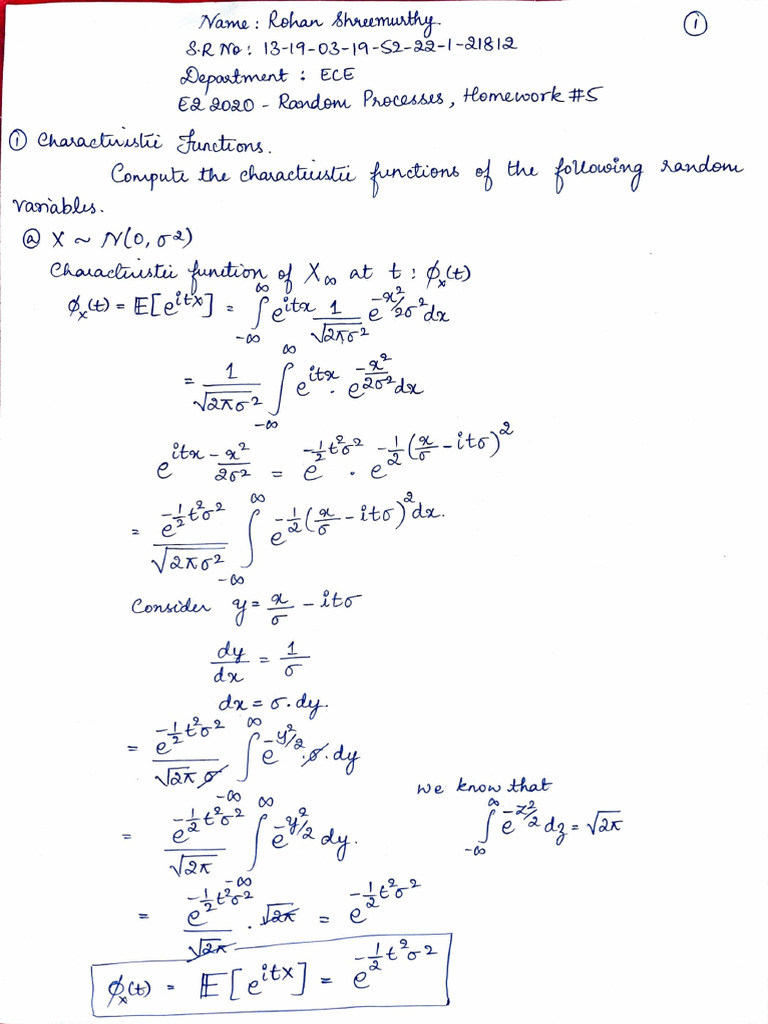 ①
Name : Rohan Shreemurthy.
S.R No : 13-19-03-19-52-22-1-21812
Department : ECE
E2 2020 - Random Processes, Homework #5
① Characteristic Functions.
Compute the characteristic functions of the following random
variables.
ⓐ X ~ N(0, σ²)
Characteristic function of X∞ at t : ϕₓ(t)
ϕₓ(t) = E[e^{itx}] = ∫_{-∞}^{∞} e^{itx} 1/√(2πσ²) e^{-x²/2σ²} dx
= 1/√(2πσ²) ∫_{-∞}^{∞} e^{itx} · e^{-x²/2σ²} dx
e^{itx - x²/2σ²} = e^{-1/2 t²σ²} · e^{-1/2 (x/σ - itσ)²}
= e^{-1/2 t²σ²}/√(2πσ²) ∫_{-∞}^{∞} e^{-1/2 (x/σ - itσ)²} dx.
Consider y = x/σ - itσ
dy/dx = 1/σ
dx = σ.dy.
= e^{-1/2 t²σ²}/(√2π σ) ∫_{-∞}^{∞} e^{-y²/2} . σ . dy
we know that
= e^{-1/2 t²σ²}/√2π ∫_{-∞}^{∞} e^{-y²/2} dy.
∫_{-∞}^{∞} e^{-z²/2} dz = √2π
= e^{-1/2 t²σ²}/√2π . √2π = e^{-1/2 t²σ²}
ϕₓ(t) = E[e^{itx}] = e^{-1/2 t²σ²}